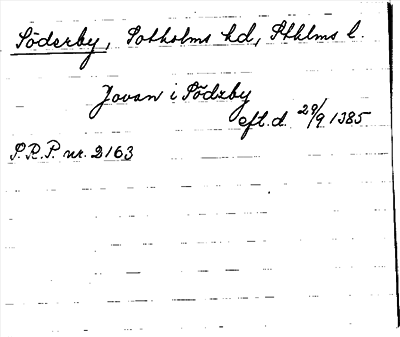 Söderby, Sotholms hd, Sthlms l.
Jovan i Södrby
eft. d. 29/9 1385
S.R.P. nr. 2163